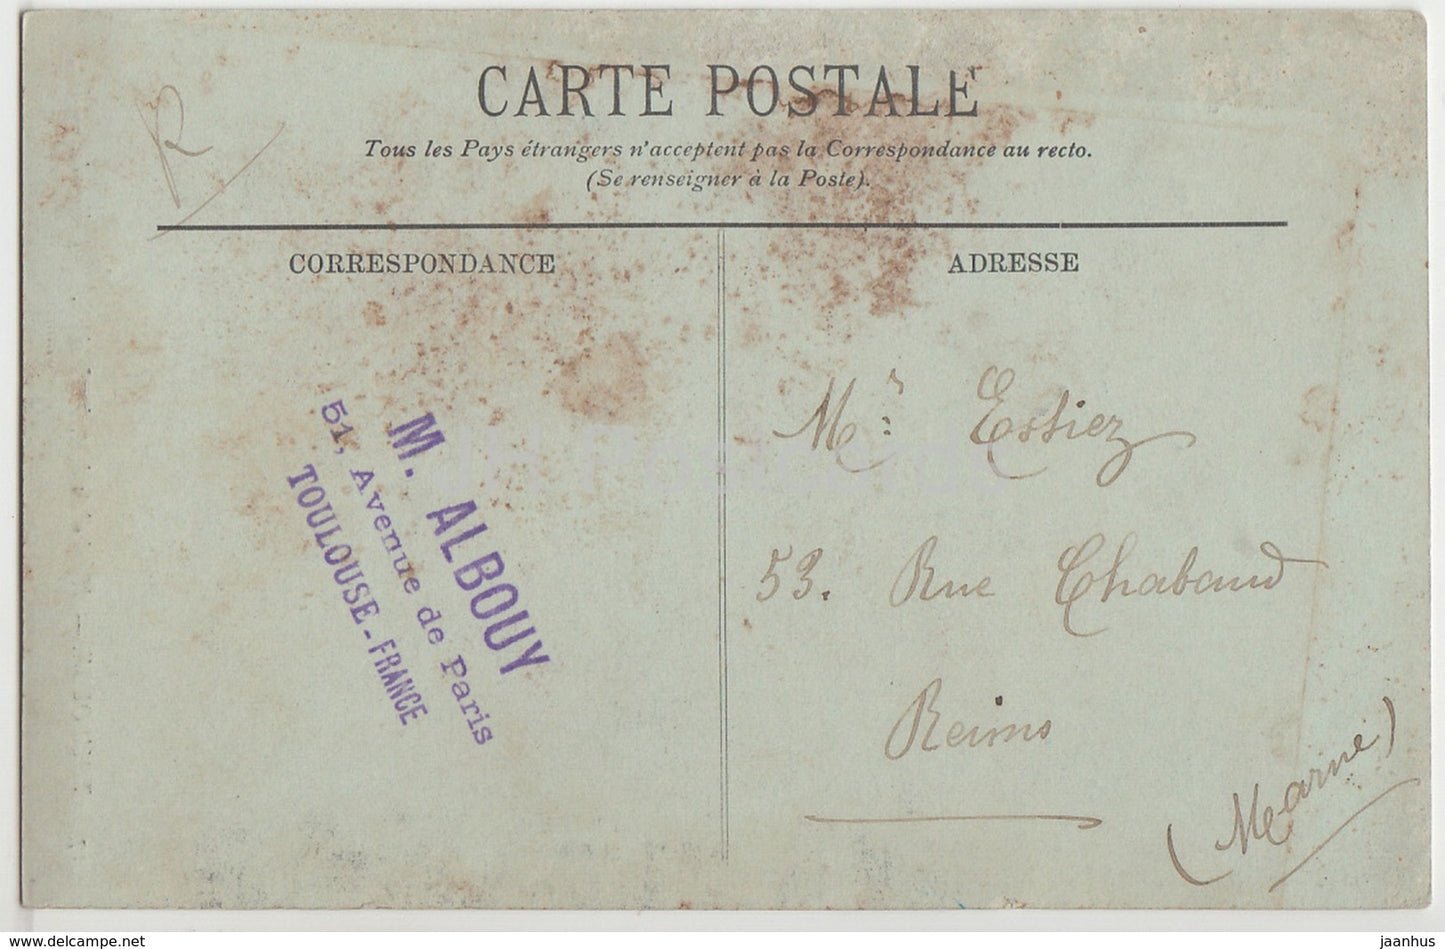 CARTE POSTALE
Tous les Pays étrangers n'acceptent pas la Correspondance au recto.
(Se renseigner à la Poste).
R
CORRESPONDANCE
ADRESSE
M. ALBOUY
51, Avenue de Paris
TOULOUSE - FRANCE
Mr: Estiez
53. Rue Chabaud
Reims
(Marne)
www.delcampe.net
jaanhus